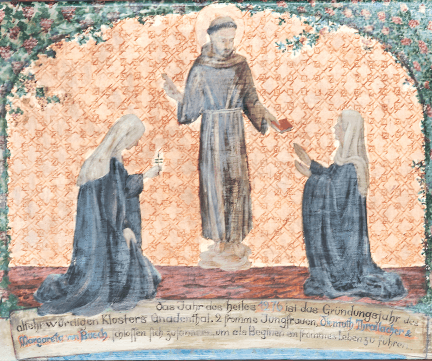 das Jahr des Heiles 1276 ist das Gründungsjahr des
altehrwürdigen Klosters Gnadenthal. 2 fromme Jungfrauen,
Margareta schließen sich zusammen um als Beginen ein frommes Leben zu führen.